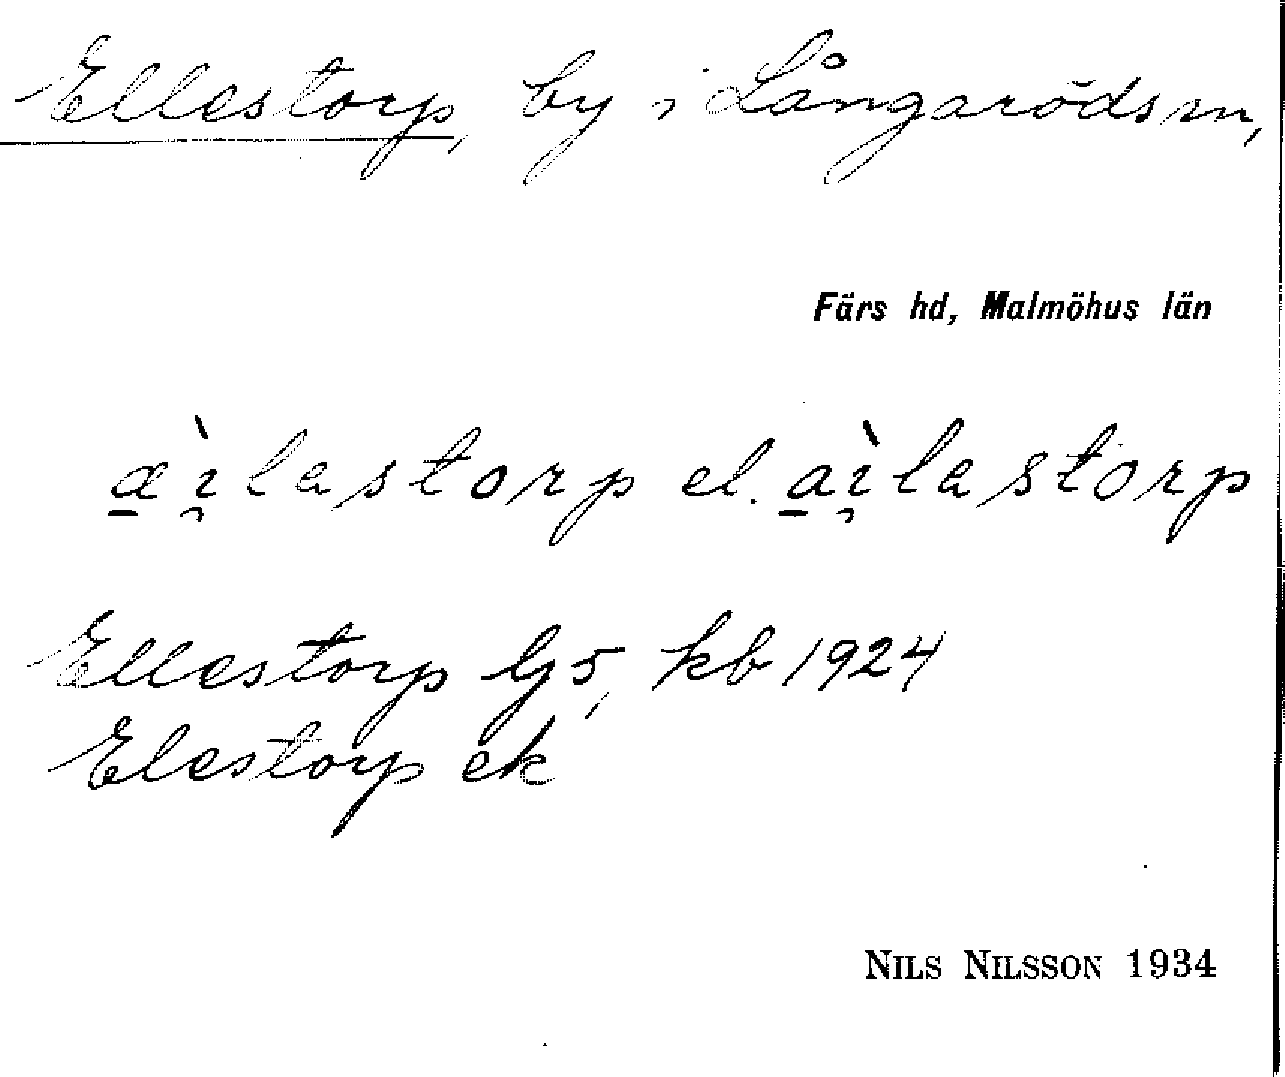 Ellestorp, by i Långaröds sn,
Färs hd, Malmöhus län
æ̠ı̯̀lastorp el. a̠ı̯̀lastorp
Ellestorp Gj 5, kb 1924
Elestorp ek
NILS NILSSON 1934